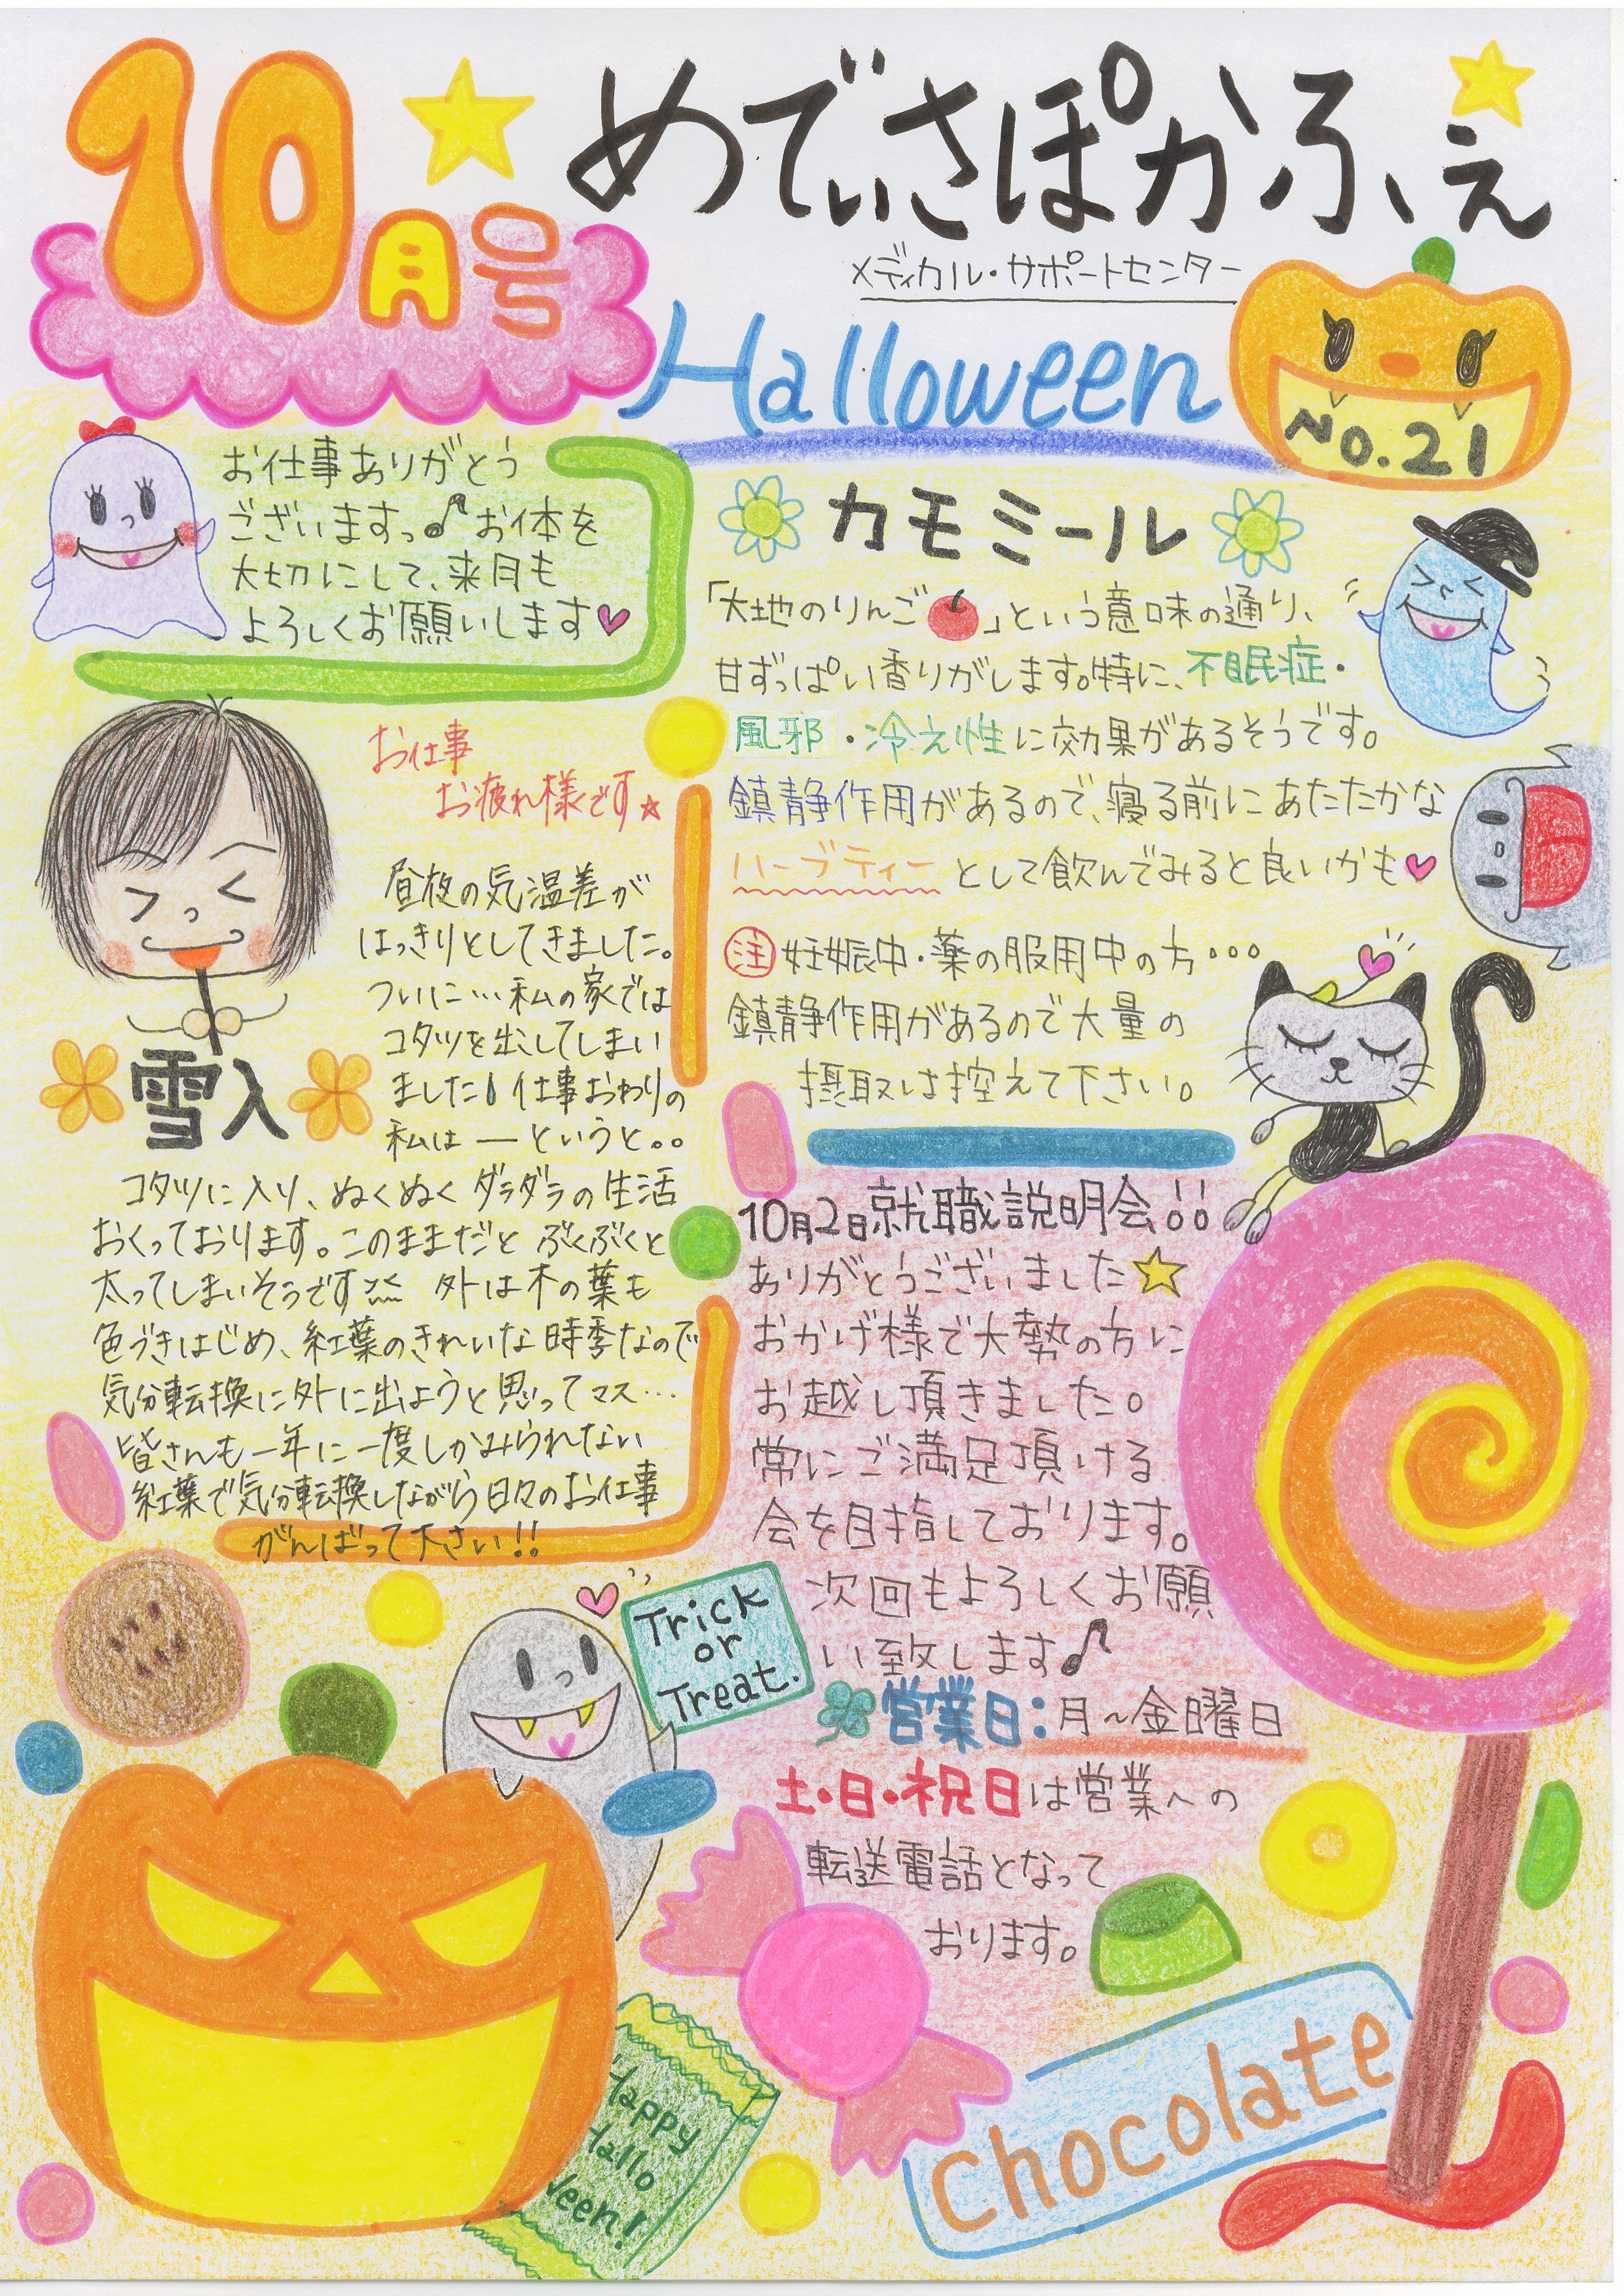 10月号
めでぃさぽかふぇ
メディカル・サポートセンター
Halloween
No.21
お仕事ありがとう
ございますっ♪お体を
大切にして、来月も
よろしくお願いします♥
お仕事
お疲れ様です☆
昼夜の気温差が
はっきりとしてきました。
ついに…私の家では
コタツを出してしまい
ました! 仕事おわりの
私は―というと。。
雪入
コタツに入り、ぬくぬくダラダラの生活
おくっております。このままだと ぶくぶくと
太ってしまいそうです 外は木の葉も
色づきはじめ、紅葉のきれいな時季なので
気分転換に外に出ようと思ってマス…
皆さんも一年に一度しかみられない
紅葉で気分転換しながら日々のお仕事
がんばって下さい!!
カモミール
「大地のりんご」という意味の通り、
甘ずっぱい香りがします。特に、不眠症・
風邪・冷え性に効果があるそうです。
鎮静作用があるので、寝る前にあたたかな
ハーブティーとして飲んでみると良いかも♥
注 妊娠中・薬の服用中の方…
鎮静作用があるので大量の
摂取は控えて下さい。
10月2日就職説明会!!
ありがとうございました☆
おかげ様で大勢の方に
お越し頂きました。
常にご満足頂ける
会を目指しております。
次回もよろしくお願
い致します♪
営業日:月~金曜日
土・日・祝日は営業への
転送電話となって
おります。
Trick
or
Treat.
Happy
Hallo
ween!
Chocolate